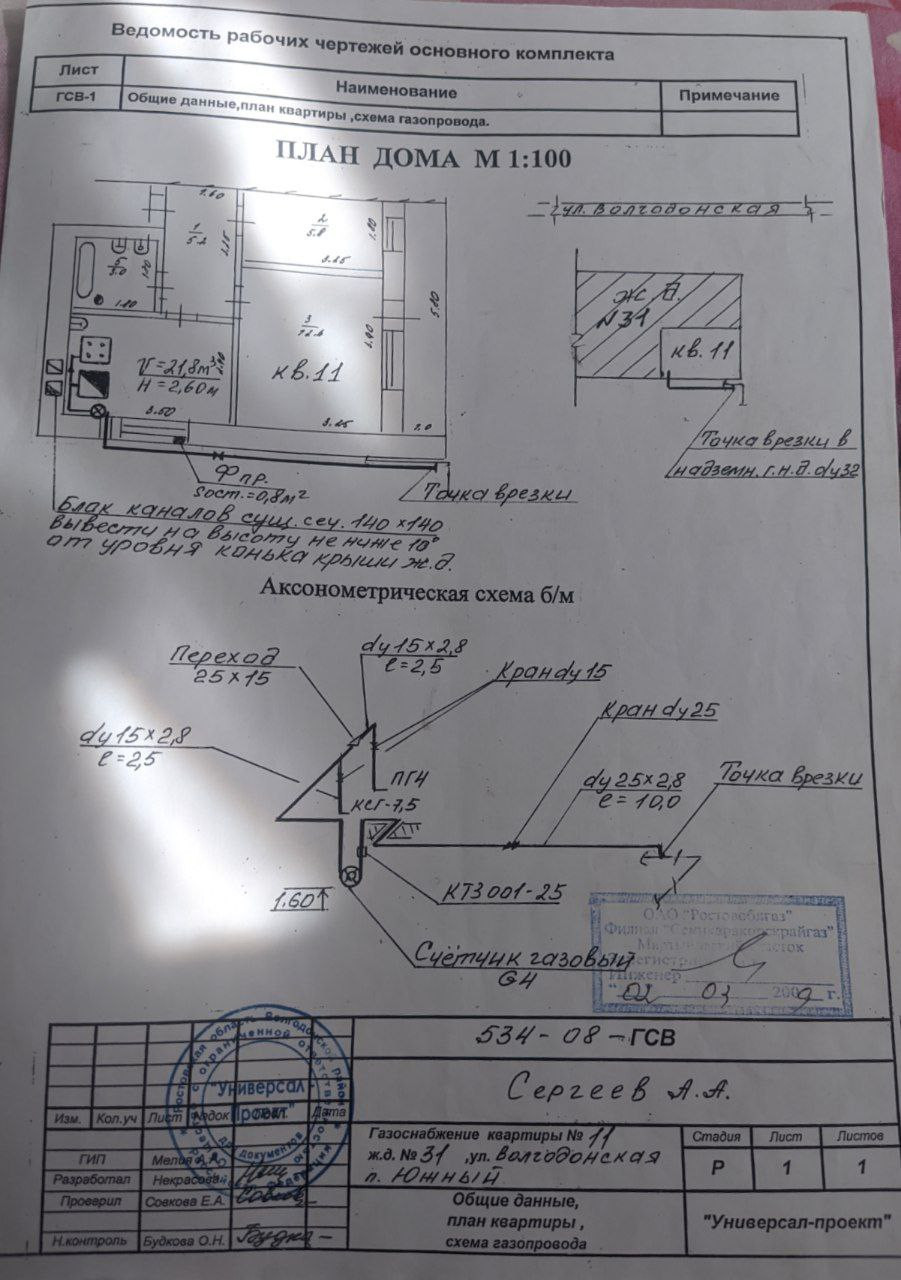 Ведомость рабочих чертежей основного комплекта
Лист
Наименование
Примечание
ГСВ-1
Общие данные,план квартиры ,схема газопровода.
ПЛАН ДОМА М 1:100
1.60
1
5.2
2.25
2
5.8
1.80
3.25
5
3.0
1.80
3
3.90
5.80
кв.11
V = 21,8м³
H = 2,60м
3.50
3.25
1.0
ул. Волгодонская
ж.д.
N31
кв. 11
Точка врезки в
надземн. г.н.д. dy32
Ф пр.
Sост.=0,8м²
Точка врезки
Блак каналов сущ. сеч. 140×140
вывести на высоту не ниже 10°
от уровня конька крыши ж.д.
Аксонометрическая схема б/м
Переход
25×15
dy15×2,8
ℓ=2,5
Кран dy15
Кран dy25
dy15×2,8
ℓ=2,5
ПГ4
КСГ-7,5
dy25×2,8
ℓ=10,0
Точка врезки
1.60
КТЗ 001-25
Счётчик газовый
G4
ОАО "Ростовоблгаз"
Филиал "Семикаракорскрайгаз"
Инженер
"02 03 2009 г.
534-08-ГСВ
Сергеев А.А.
"Универсал
Проект"
Изм.
Кол.уч
Лист
№док
Дата
Газоснабжение квартиры № 11
ж.д. № 31 ,ул. Волгодонская
п. Южный
Стадия
Лист
Листов
Р
1
1
ГИП
Разработал
Некрасова
Проверил
Совкова Е.А.
Н.контроль
Будкова О.Н.
Общие данные,
план квартиры ,
схема газопровода
"Универсал-проект"